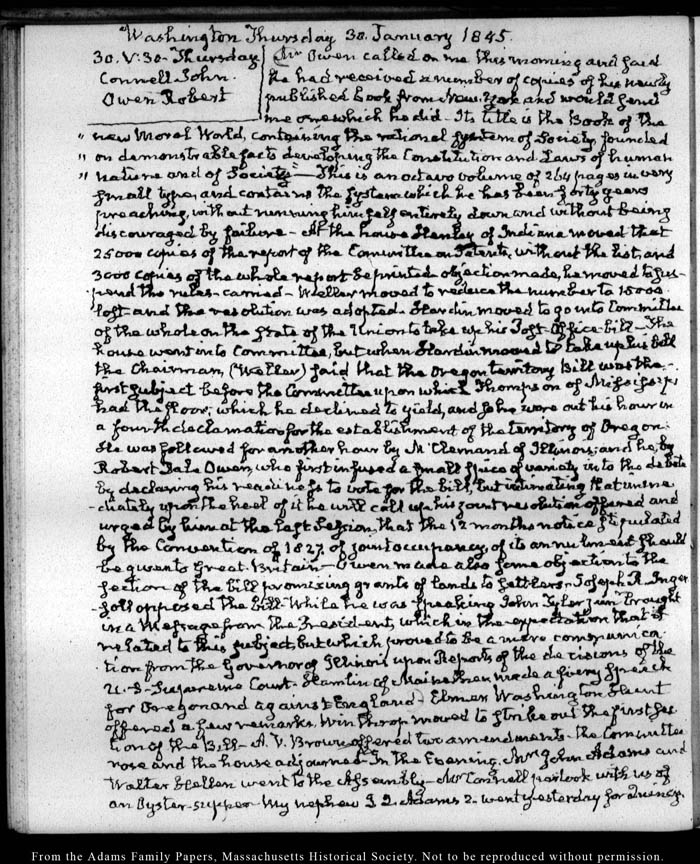 Washington Thursday 30. January 1845.
30. V:30. Thursday
Connell John.
Owen Robert
Mr Owen called on me this morning and said
he had received a number of copies of his newly
published book from New-York and would send
me one which he did. Its title is the Book of the
" new Moral World, containing the rational System of Society, founded
" on demonstrable facts developing the Constitution and Laws of human
" nature and of Society" — This is an octavo volume of 264 pages in very
small type, and contains the System which he has been forty years
preaching, without running himself entirely down and without being
discouraged by failure – At the house Henley of Indiana moved that
25000 copies of the report of the Committee on Patents, without the list, and
3000 copies of the whole report be printed objection made, he moved to sus-
pend the rules – carried – Weller moved to reduce the number to 15000
lost and the resolution was adopted. Hardin moved to go into Committee
of the whole on the State of the Union to take up his Post-Office bill – The
house went into Committee, but when Hardin moved to take up his bill
the Chairman, (Weller) said that the Oregon territory Bill was the
first subject before the Committee upon which Thompson of Mississippi
had the floor; which he declined to yield, and so he wore out his hour in
a fourth declamation for the establishment of the territory of Oregon.
He was followed for another hour by McClernand of Illinois; and he, by
Robert Dale Owen, who first infused a small spice of variety into the debate
by declaring his readiness to vote for the bill, but intimating that imme
-diately upon the heel of it he will call up his joint resolution offered and
urged by him at the last Session, that the 12 months notice stipulated
by the Convention of 1827. of joint occupancy, of its annulment should
be given to Great-Britain – Owen made also some objection to the
section of the bill promising grants of lands to settlers – Joseph R. Inger
-soll opposed the bill. While he was speaking John Tyler junr brought
in a Message from the President, which in the expectation that it
related to this subject, but which proved to be a mere communica-
tion from the Governor of Illinois upon Reports of the decisions of the
U.S. Supreme Court – Hamlin of Maine then made a fiery speech
for Oregon and against England – Elmer, Washington Hunt
offered a few remarks. Winthrop moved to strike out the first sec
tion of the Bill – A. V. Brown offered two amendments – the Committee
rose and the house adjourned. In the Evening, Mrs John Adams and
Walter Hellen went to the Assembly – Mr Connell partook with us of
an Oyster-supper. My nephew J. Q. Adams 2. went yesterday for Quincy.
From the Adams Family Papers, Massachusetts Historical Society. Not to be reproduced without permission.